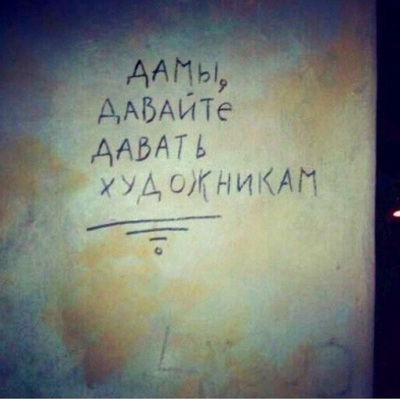 ДАМЫ,
ДАВАЙТЕ
ДАВАТЬ
ХУДОЖНИКАМ